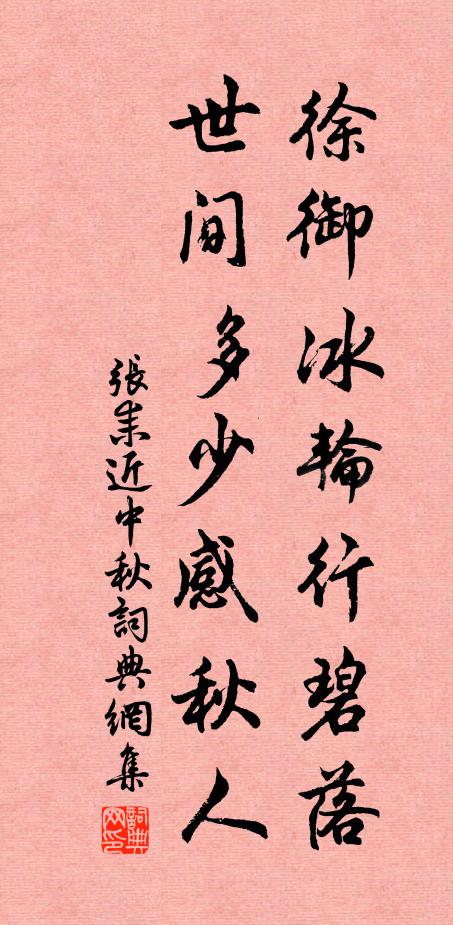 徐御冰輪行碧落
世間多少感秋人
張耒近中秋詞典網集
詞典网印